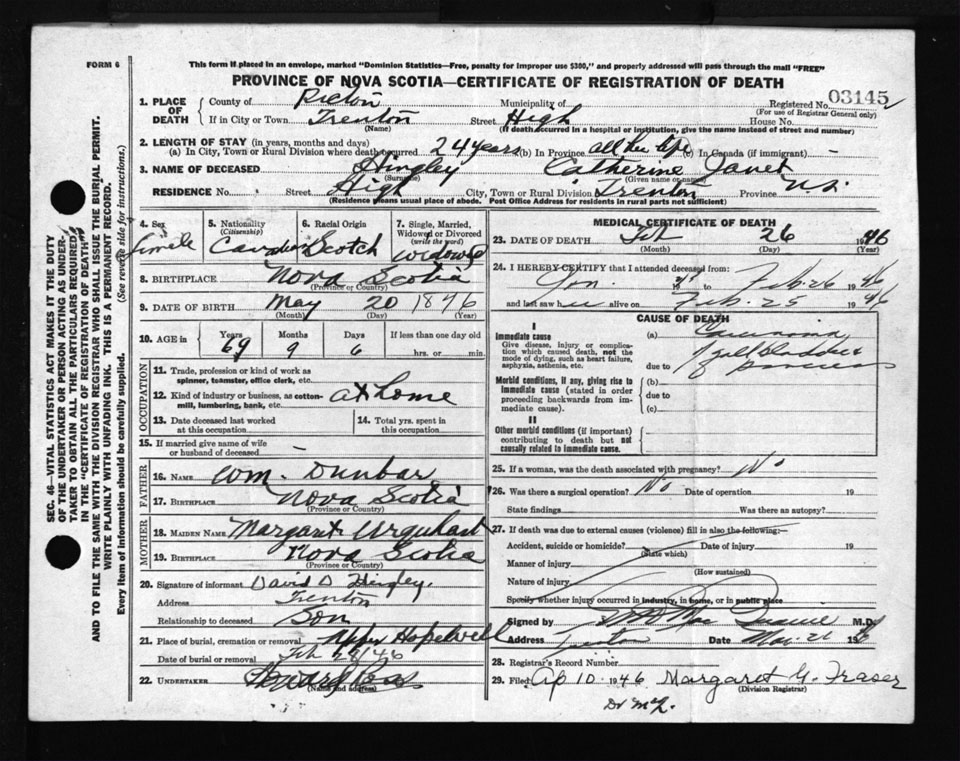 FORM 6
This form if placed in an envelope, marked "Dominion Statistics—Free, penalty for improper use $300," and properly addressed will pass through the mail "FREE"
PROVINCE OF NOVA SCOTIA—CERTIFICATE OF REGISTRATION OF DEATH
1. PLACE OF DEATH
County of Pictou Municipality of Registered No. 03145
(For use of Registrar General only)
If in City or Town Trenton Street High House No.
(Name) (If death occurred in a hospital or institution, give the name instead of street and number)
2. LENGTH OF STAY (in years, months and days)
(a) In City, Town or Rural Division where death occurred 24 years (b) In Province all her life (c) In Canada (if immigrant) —
3. NAME OF DECEASED Hingley Catherine Janet
(Surname) (Given name or names)
RESIDENCE No. Street High City, Town or Rural Division Trenton Province N.S.
(Residence means usual place of abode. Post Office Address for residents in rural parts not sufficient)
4. Sex Female
5. Nationality (Citizenship) Canadian
6. Racial Origin Scotch
7. Single, Married, Widowed or Divorced (write the word) widowed
8. BIRTHPLACE Nova Scotia
(Province or Country)
9. DATE OF BIRTH May 20 1876
(Month) (Day) (Year)
10. AGE in Years Months Days If less than one day old
69 9 6 hrs. or min.
OCCUPATION
11. Trade, profession or kind of work as spinner, teamster, office clerk, etc.
12. Kind of industry or business, as cotton-mill, lumbering, bank, etc. at Home
13. Date deceased last worked at this occupation
14. Total yrs. spent in this occupation
15. If married give name of wife or husband of deceased —
FATHER
16. NAME Wm. Dunbar
17. BIRTHPLACE Nova Scotia
(Province or Country)
MOTHER
18. MAIDEN NAME Margaret Urquhart
19. BIRTHPLACE Nova Scotia
(Province or Country)
20. Signature of informant David D Hingley.
Address Trenton
Relationship to deceased Son
21. Place of burial, cremation or removal Upper Hopewell
Date of burial or removal Feb 28/46
22. UNDERTAKER
(Name and address)
MEDICAL CERTIFICATE OF DEATH
23. DATE OF DEATH Feb 26 1946
(Month) (Day) (Year)
24. I HEREBY CERTIFY that I attended deceased from:
Jan. 19 to Feb. 26 1946
and last saw her alive on Feb. 25 1946
CAUSE OF DEATH
I
Immediate cause
Give disease, injury or complication which caused death, not the mode of dying, such as heart failure, asphyxia, asthenia, etc.
(a) Carcinoma
of gall bladder
due to pancreas
Morbid conditions, if any, giving rise to immediate cause (stated in order proceeding backwards from immediate cause).
(b)
due to
(c)
II
Other morbid conditions (if important) contributing to death but not causally related to immediate cause.
25. If a woman, was the death associated with pregnancy? No
26. Was there a surgical operation? No Date of operation 19
State findings Was there an autopsy?
27. If death was due to external causes (violence) fill in also the following:—
Accident, suicide or homicide? Date of injury 19
(State which)
Manner of injury
(How sustained)
Nature of injury
Specify whether injury occurred in industry, in home, or in public place
Signed by M.D.
Address Trenton Date Mar. 21
28. Registrar's Record Number
29. Filed Ap 10 1946 Margaret G. Fraser
(Division Registrar)
SEC. 46—VITAL STATISTICS ACT MAKES IT THE DUTY
OF THE UNDERTAKER OR PERSON ACTING AS UNDER-
TAKER TO OBTAIN ALL THE PARTICULARS REQUIRED
IN THE "CERTIFICATE OF REGISTRATION OF DEATH" AND
TO FILE THE SAME WITH THE DIVISION REGISTRAR WHO SHALL ISSUE THE BURIAL PERMIT.
WRITE PLAINLY WITH UNFADING INK. THIS IS A PERMANENT RECORD.
Every item of information should be carefully supplied. (See reverse side for instructions.)